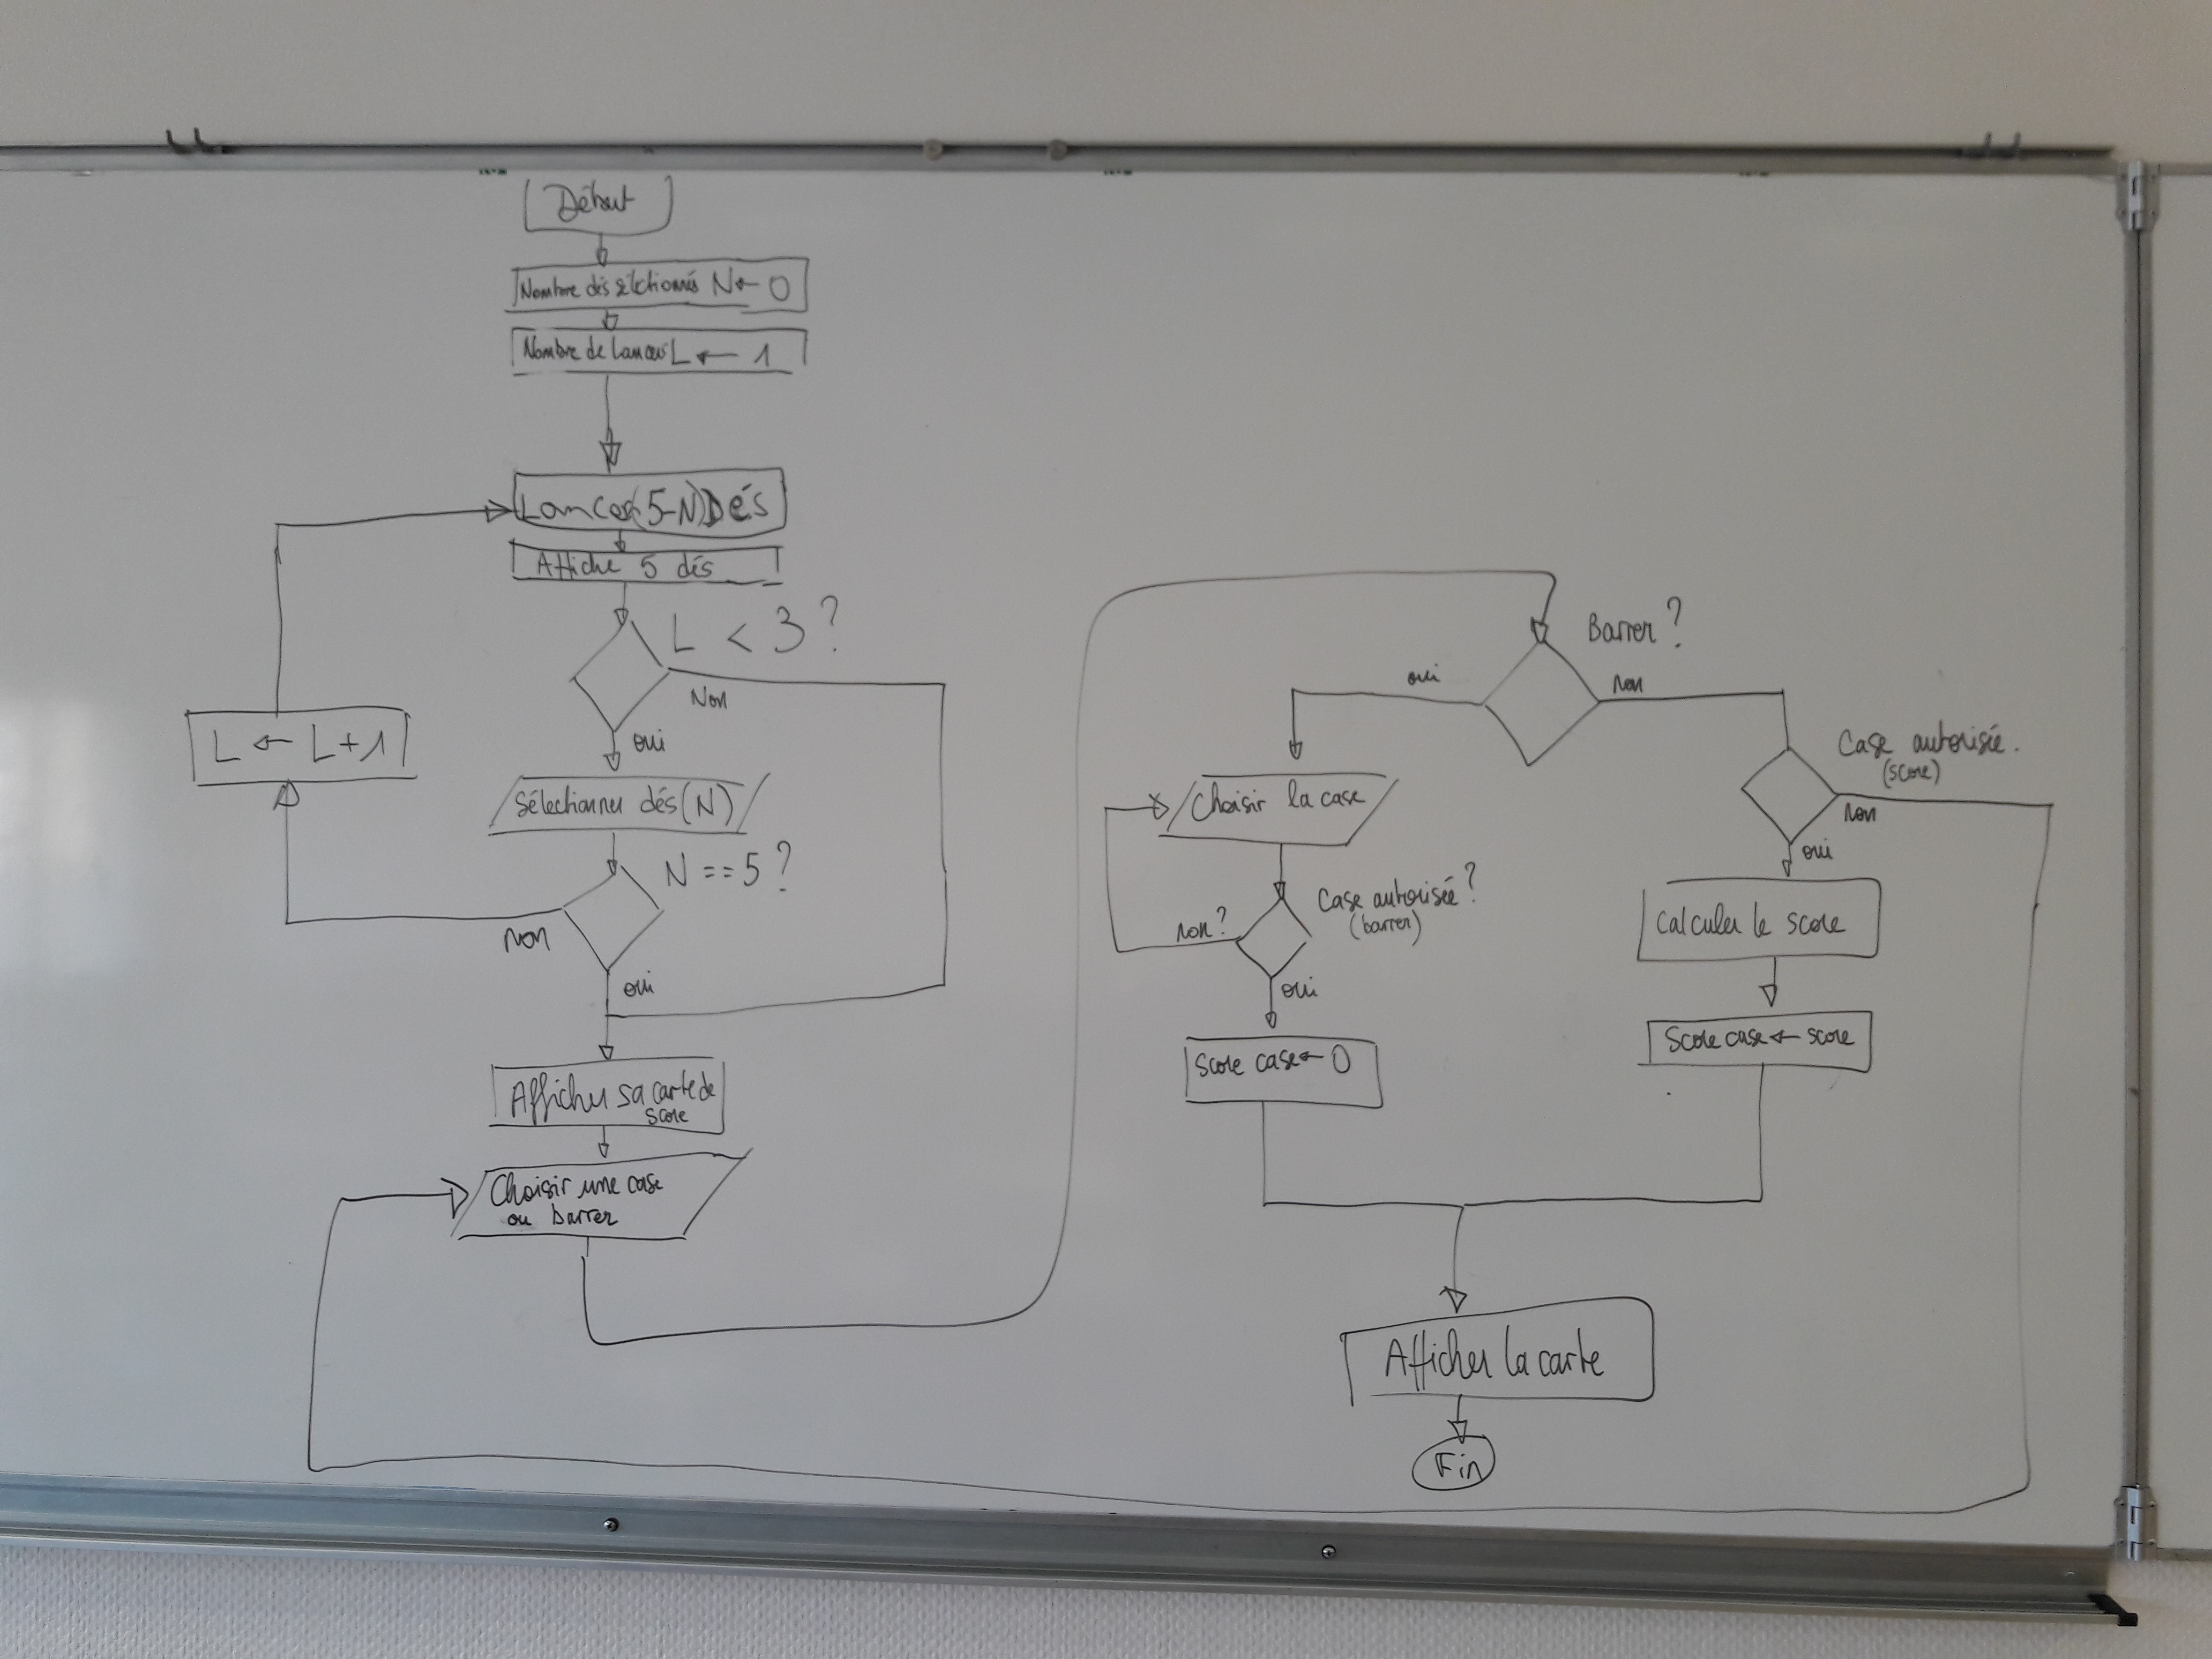 Début
Nombre dés sélectionnés N ← 0
Nombre de lancers L ← 1
Lancer (5-N) Dés
Affiche 5 dés
L < 3 ?
Non
oui
L ← L+1
Sélectionner dés (N)
N == 5 ?
Non
oui
Afficher sa carte de
score
Choisir une case
ou barrer
Barrer ?
oui
non
Choisir la case
Case autorisée ?
(barrer)
non ?
oui
Score case ← 0
Case autorisée.
(score)
non
oui
Calculer le score
Score case ← score
Afficher la carte
Fin